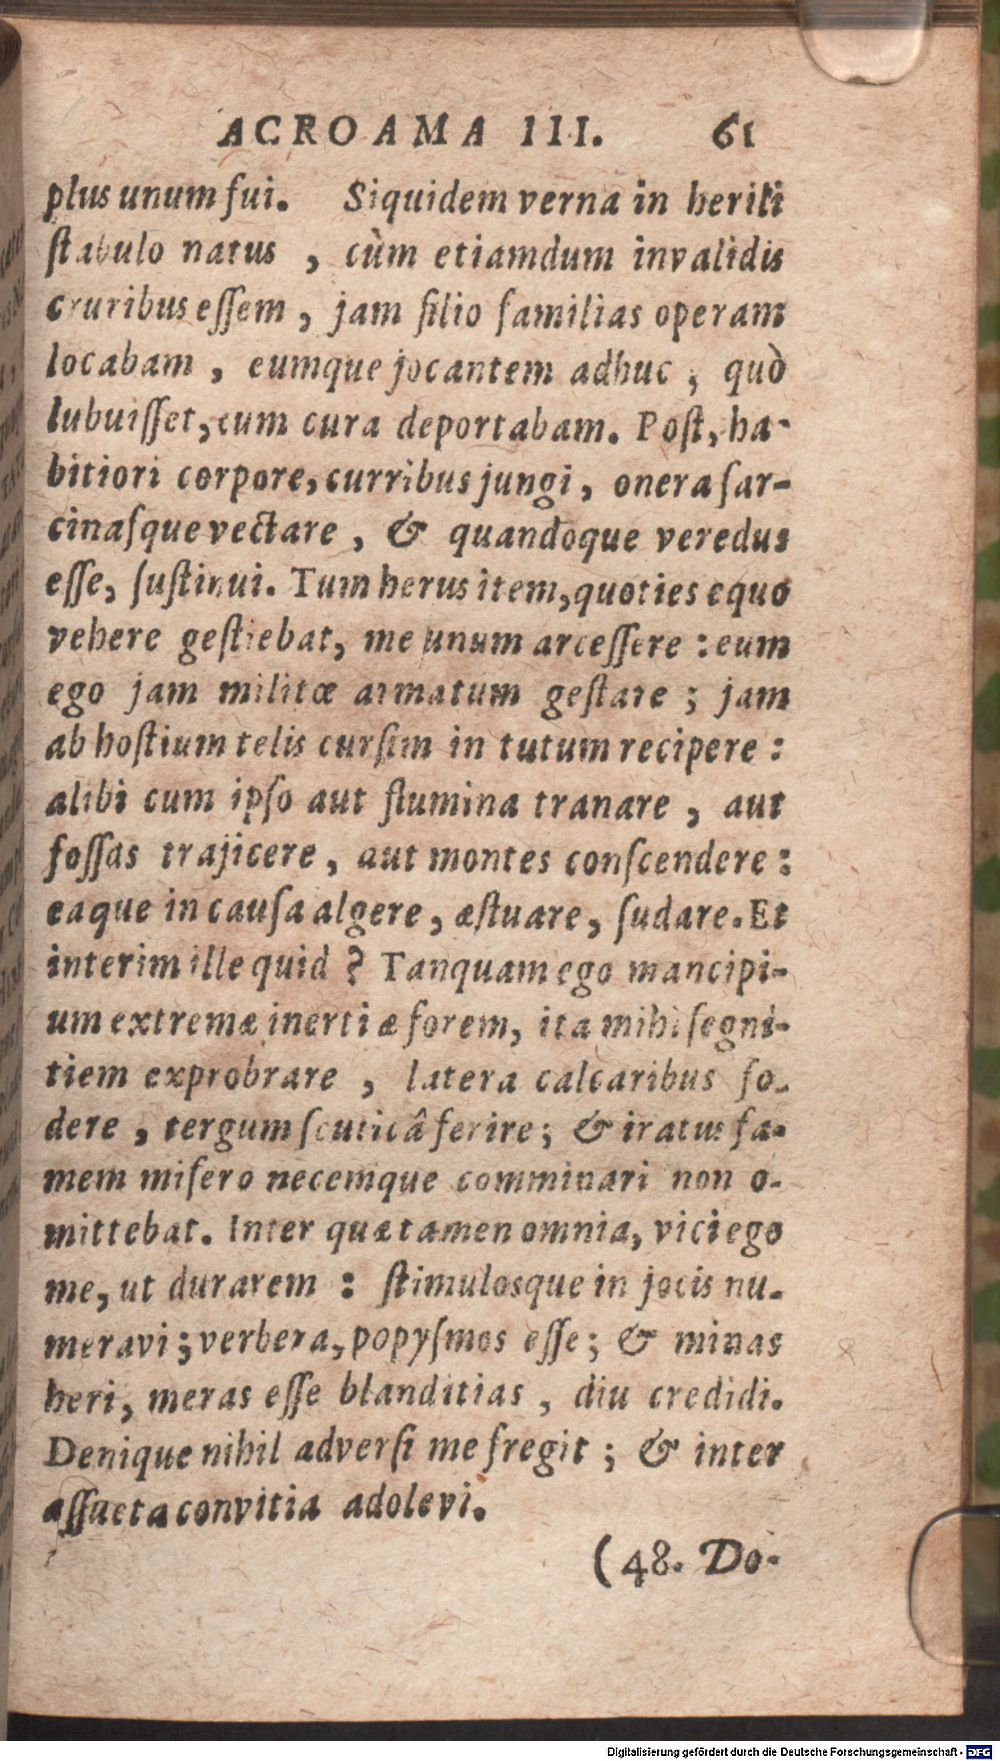 ACROAMA III. 61
plus unum fui. Siquidem verna in herili
ſtabulo natus , cùm etiamdum invalidis
cruribus eſſem , jam filio familias operam
locabam , eumque jocantem adhuc , quò
lubuiſſet, cum cura deportabam. Poſt, ha-
bitiori corpore, curribus jungi, onera ſar-
cinaſque vectare , & quandoque veredus
eſſe, ſuſtinui. Tum herus item, quoties equo
vehere geſtiebat, me unum arceſſere : eum
ego jam militœ armatum geſtare ; jam
ab hoſtium telis curſim in tutum recipere :
alibi cum ipſo aut flumina tranare , aut
foſſas trajicere , aut montes conſcendere :
eaque in cauſa algere, æſtuare, ſudare. Et
interim ille quid ? Tanquam ego mancipi-
um extremæ inertiæ forem, ita mihi ſegni-
tiem exprobrare , latera calcaribus fo-
dere , tergum ſcuticâ ferire; & iratus fa-
mem miſero necemque comminari non o-
mittebat. Inter quæ tamen omnia, vici ego
me, ut durarem : ſtimulosque in jocis nu-
meravi ; verbera, popyſmos eſſe ; & minas
heri, meras eſſe blanditias , diu credidi.
Denique nihil adverſi me fregit ; & inter
aſſueta convitia adolevi.
(48. Do-
Digitalisierung gefördert durch die Deutsche Forschungsgemeinschaft - DFG